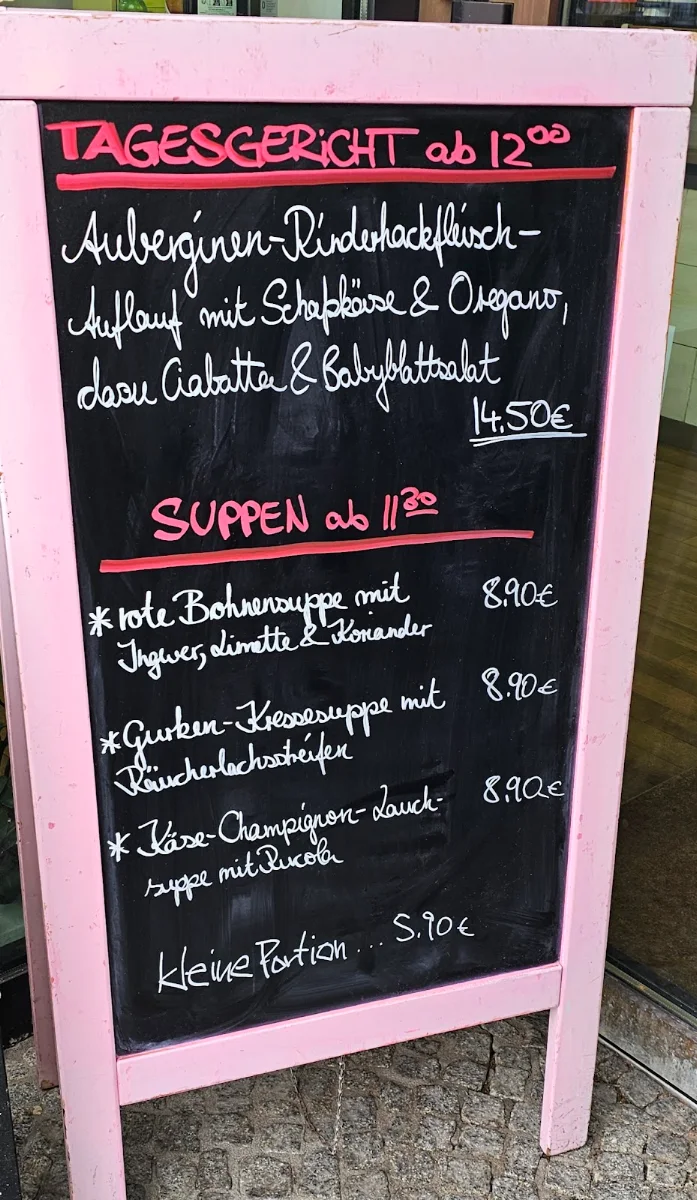 TAGESGERiCHT ab 12⁰⁰
Auberginen-Rinderhackfleisch-
Auflauf mit Schafskäse & Oregano,
dazu Ciabatta & Babyblattsalat
14.50€
SUPPEN ab 11³⁰
* rote Bohnensuppe mit 8.90€
Ingwer, Limette & Koriander
* Gurken-Kressesuppe mit 8.90€
Räucherlachsstreifen
* Käse-Champignon-Lauch- 8.90€
suppe mit Rucola
kleine Portion ... 5.90€